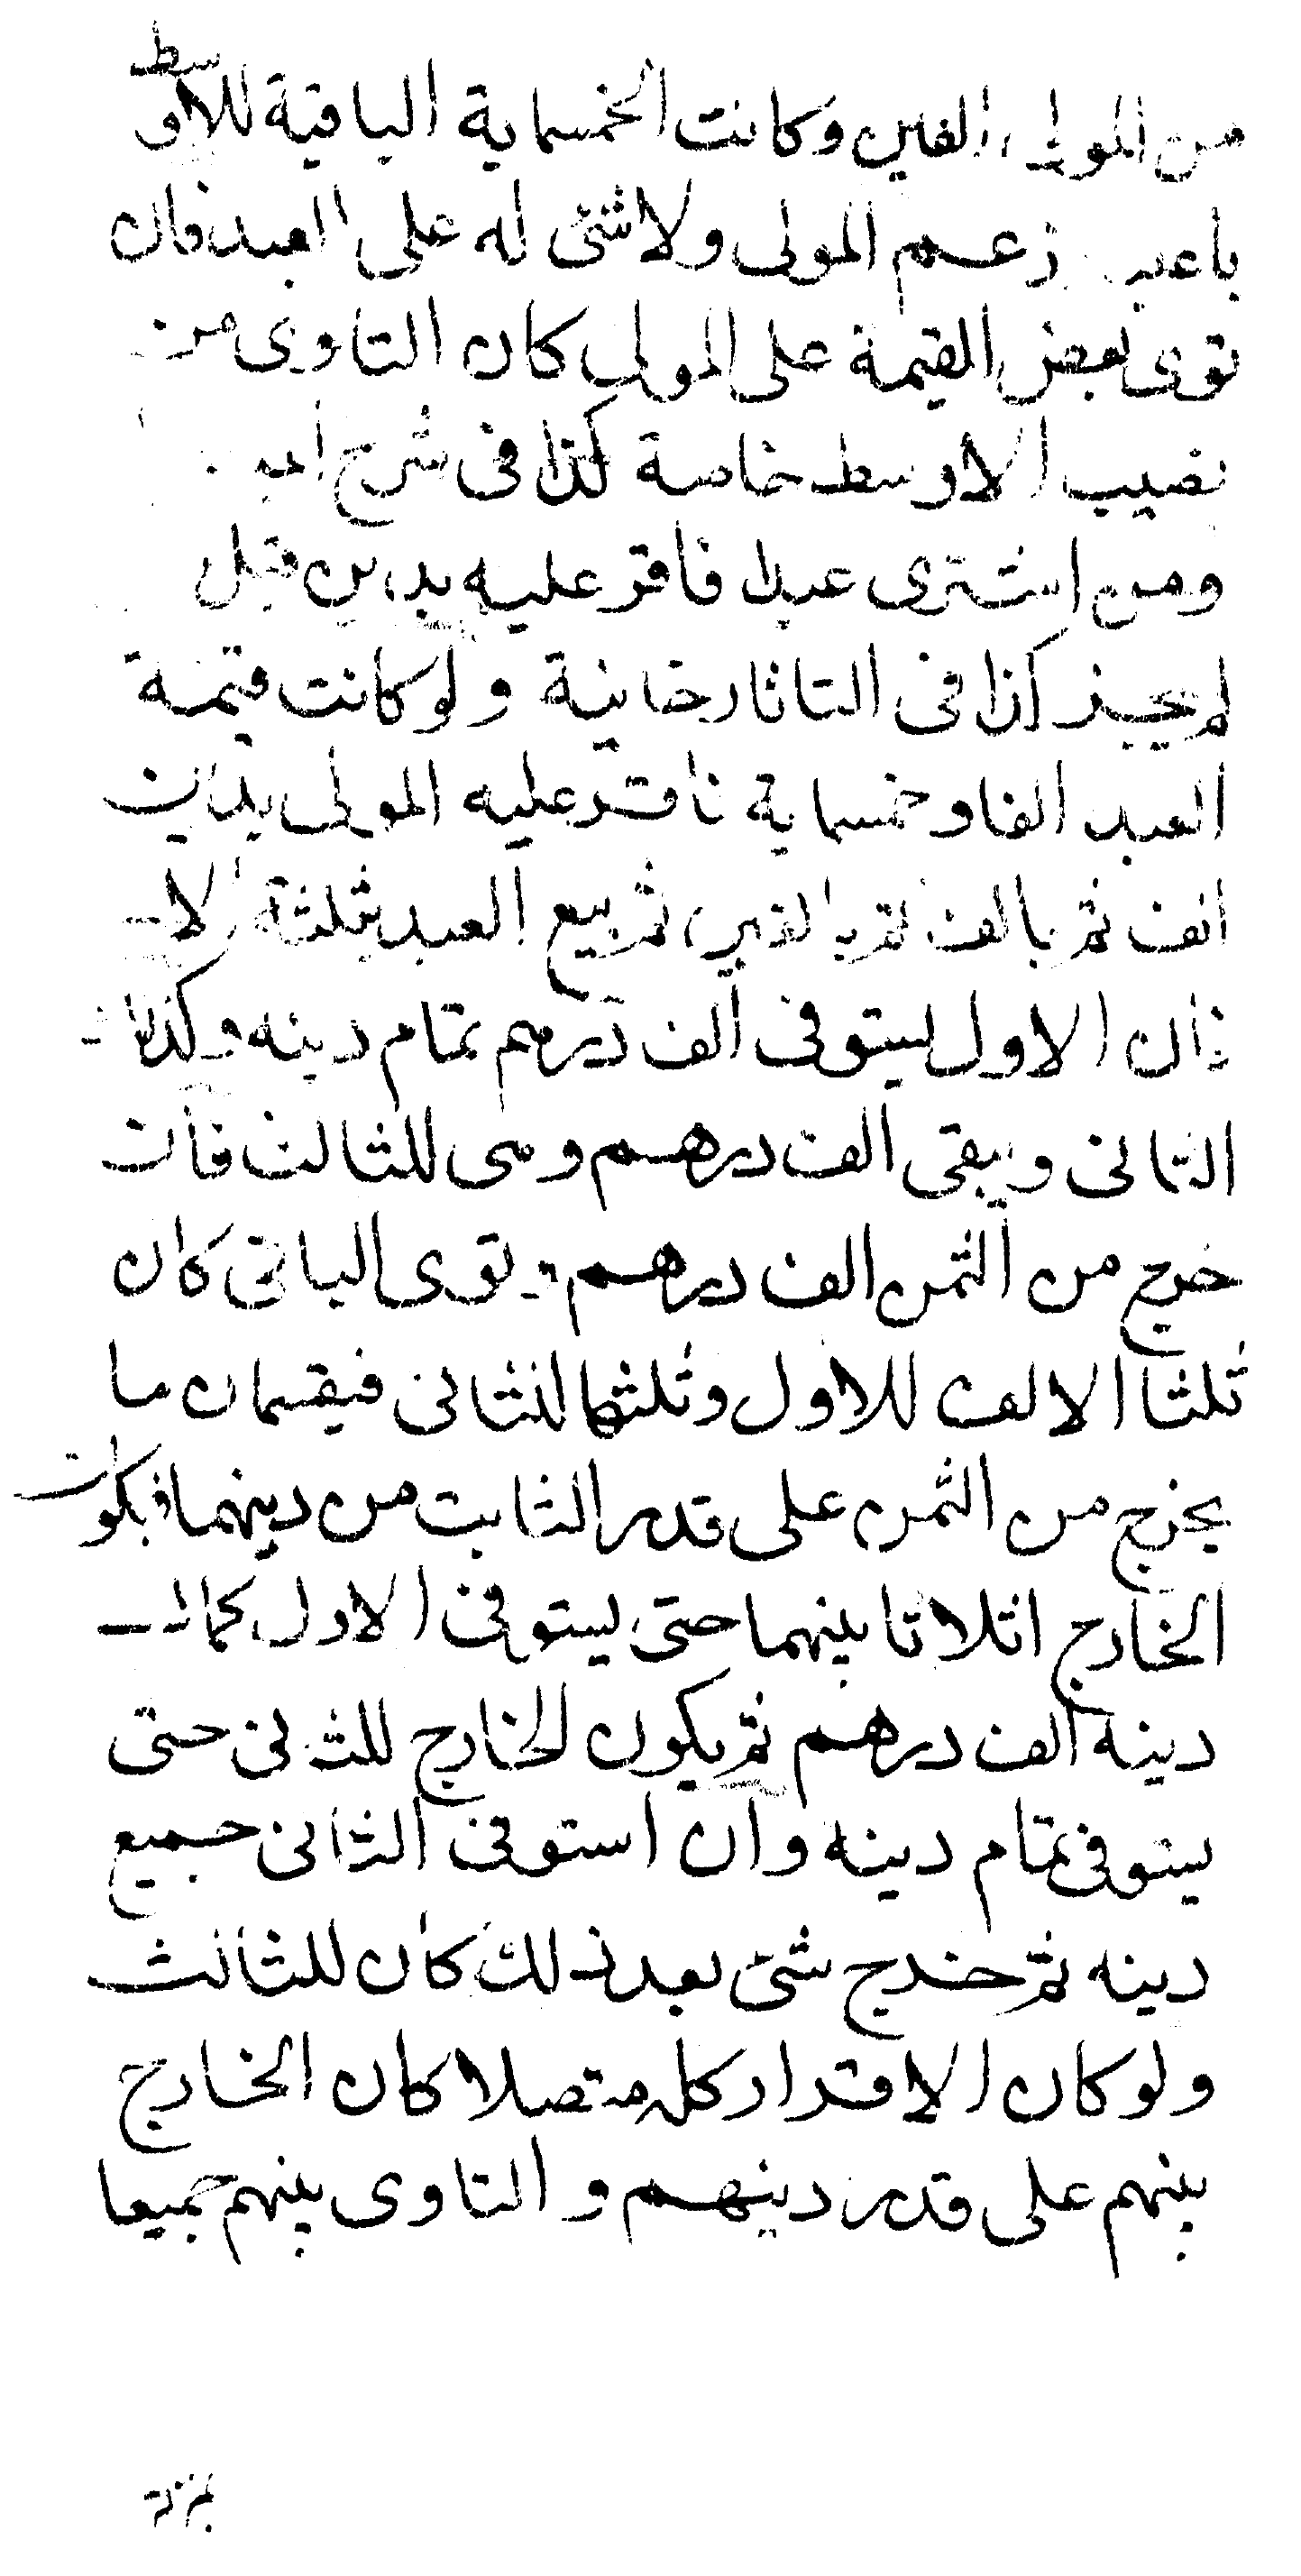 من المولى الفين وكانت الخمسماية الباقية للاوسط
باعتبار زعم المولى ولا شئ له على العبد فان
توى بعض القيمة على المولى كان التاوى من
نصيب الاوسط خاصة كذا فى شرح
ومن اشترى عبدا فاقر عليه بدين قبل
لم يجز كذا فى التاتارخانية ولو كانت قيمة
العبد الفا وخمسماية فاقر عليه المولى بدين
الف ثم بالف ثم بالفين ثم بيع العبد بثلثة الا
فان الاول يستوفى الف درهم تمام دينه وكذا
الثانى ويبقى الف درهم وهى للثالث فان
خرج من الثمن الف درهم وتوى الباقى كان
ثلثا الالف للاول وثلثها للثانى فيقسمان ما
يخرج من الثمن على قدر الثابت من دينهما فيكون
الخارج اثلاثا بينهما حتى يستوفى الاول كمال
دينه الف درهم ثم يكون الخارج للثانى حتى
يستوفى تمام دينه وان استوفى الثانى جميع
دينه ثم خرج شئ بعد ذلك كان للثالث
ولو كان الاقرار كله متصلا كان الخارج
بينهم على قدر دينهم والتاوى بينهم جميعا